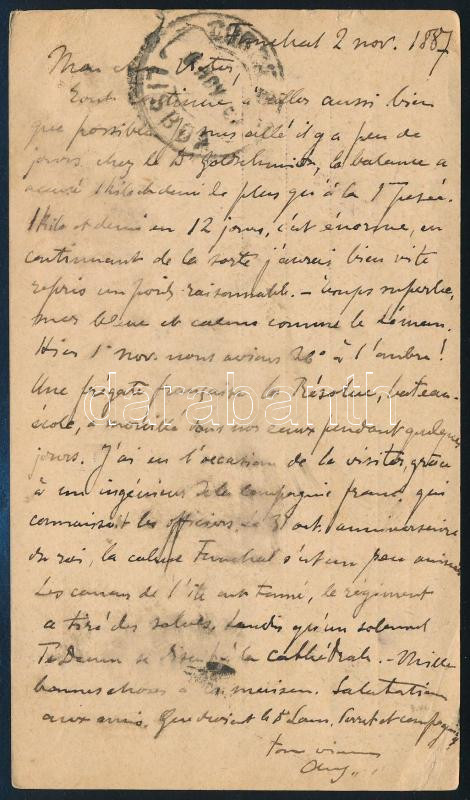 Funchal 2 nov. 1887
Mon cher Victor,
Tout continue à aller aussi bien
que possible. me suis il y a peu de
jours chez le Dr Goldschmidt, la balance a
accusé 1 kilo et demi de plus qu'à la 1ère pesée.
1 kilo et demi en 12 jours, c'est énorme, en
continuant de la sorte j'aurai bien vite
repris un poids raisonnable. – Temps superbe,
mer bleue et calme comme le Léman.
Hier 1er nov. nous avions 26° à l'ombre!
Une frégate française la Résolue, bateau-
école, a mouillé sous nos yeux pendant quelques
jours. J'ai eu l'occasion de la visiter, grâce
à un ingénieur de la compagnie franç. qui
connaissait les officiers. Le 31 oct. anniversaire
du roi, la calme Funchal s'est un peu animée
Les canons de l'île ont tonné, le régiment
a tiré des salves, tandis qu'un solennel
Te Deum se disait à la cathédrale. – Mille
bonnes choses à Salutations
aux amis. Que devient le Dr Perret et compagnie?
ton vieux
Aug.
darabanth